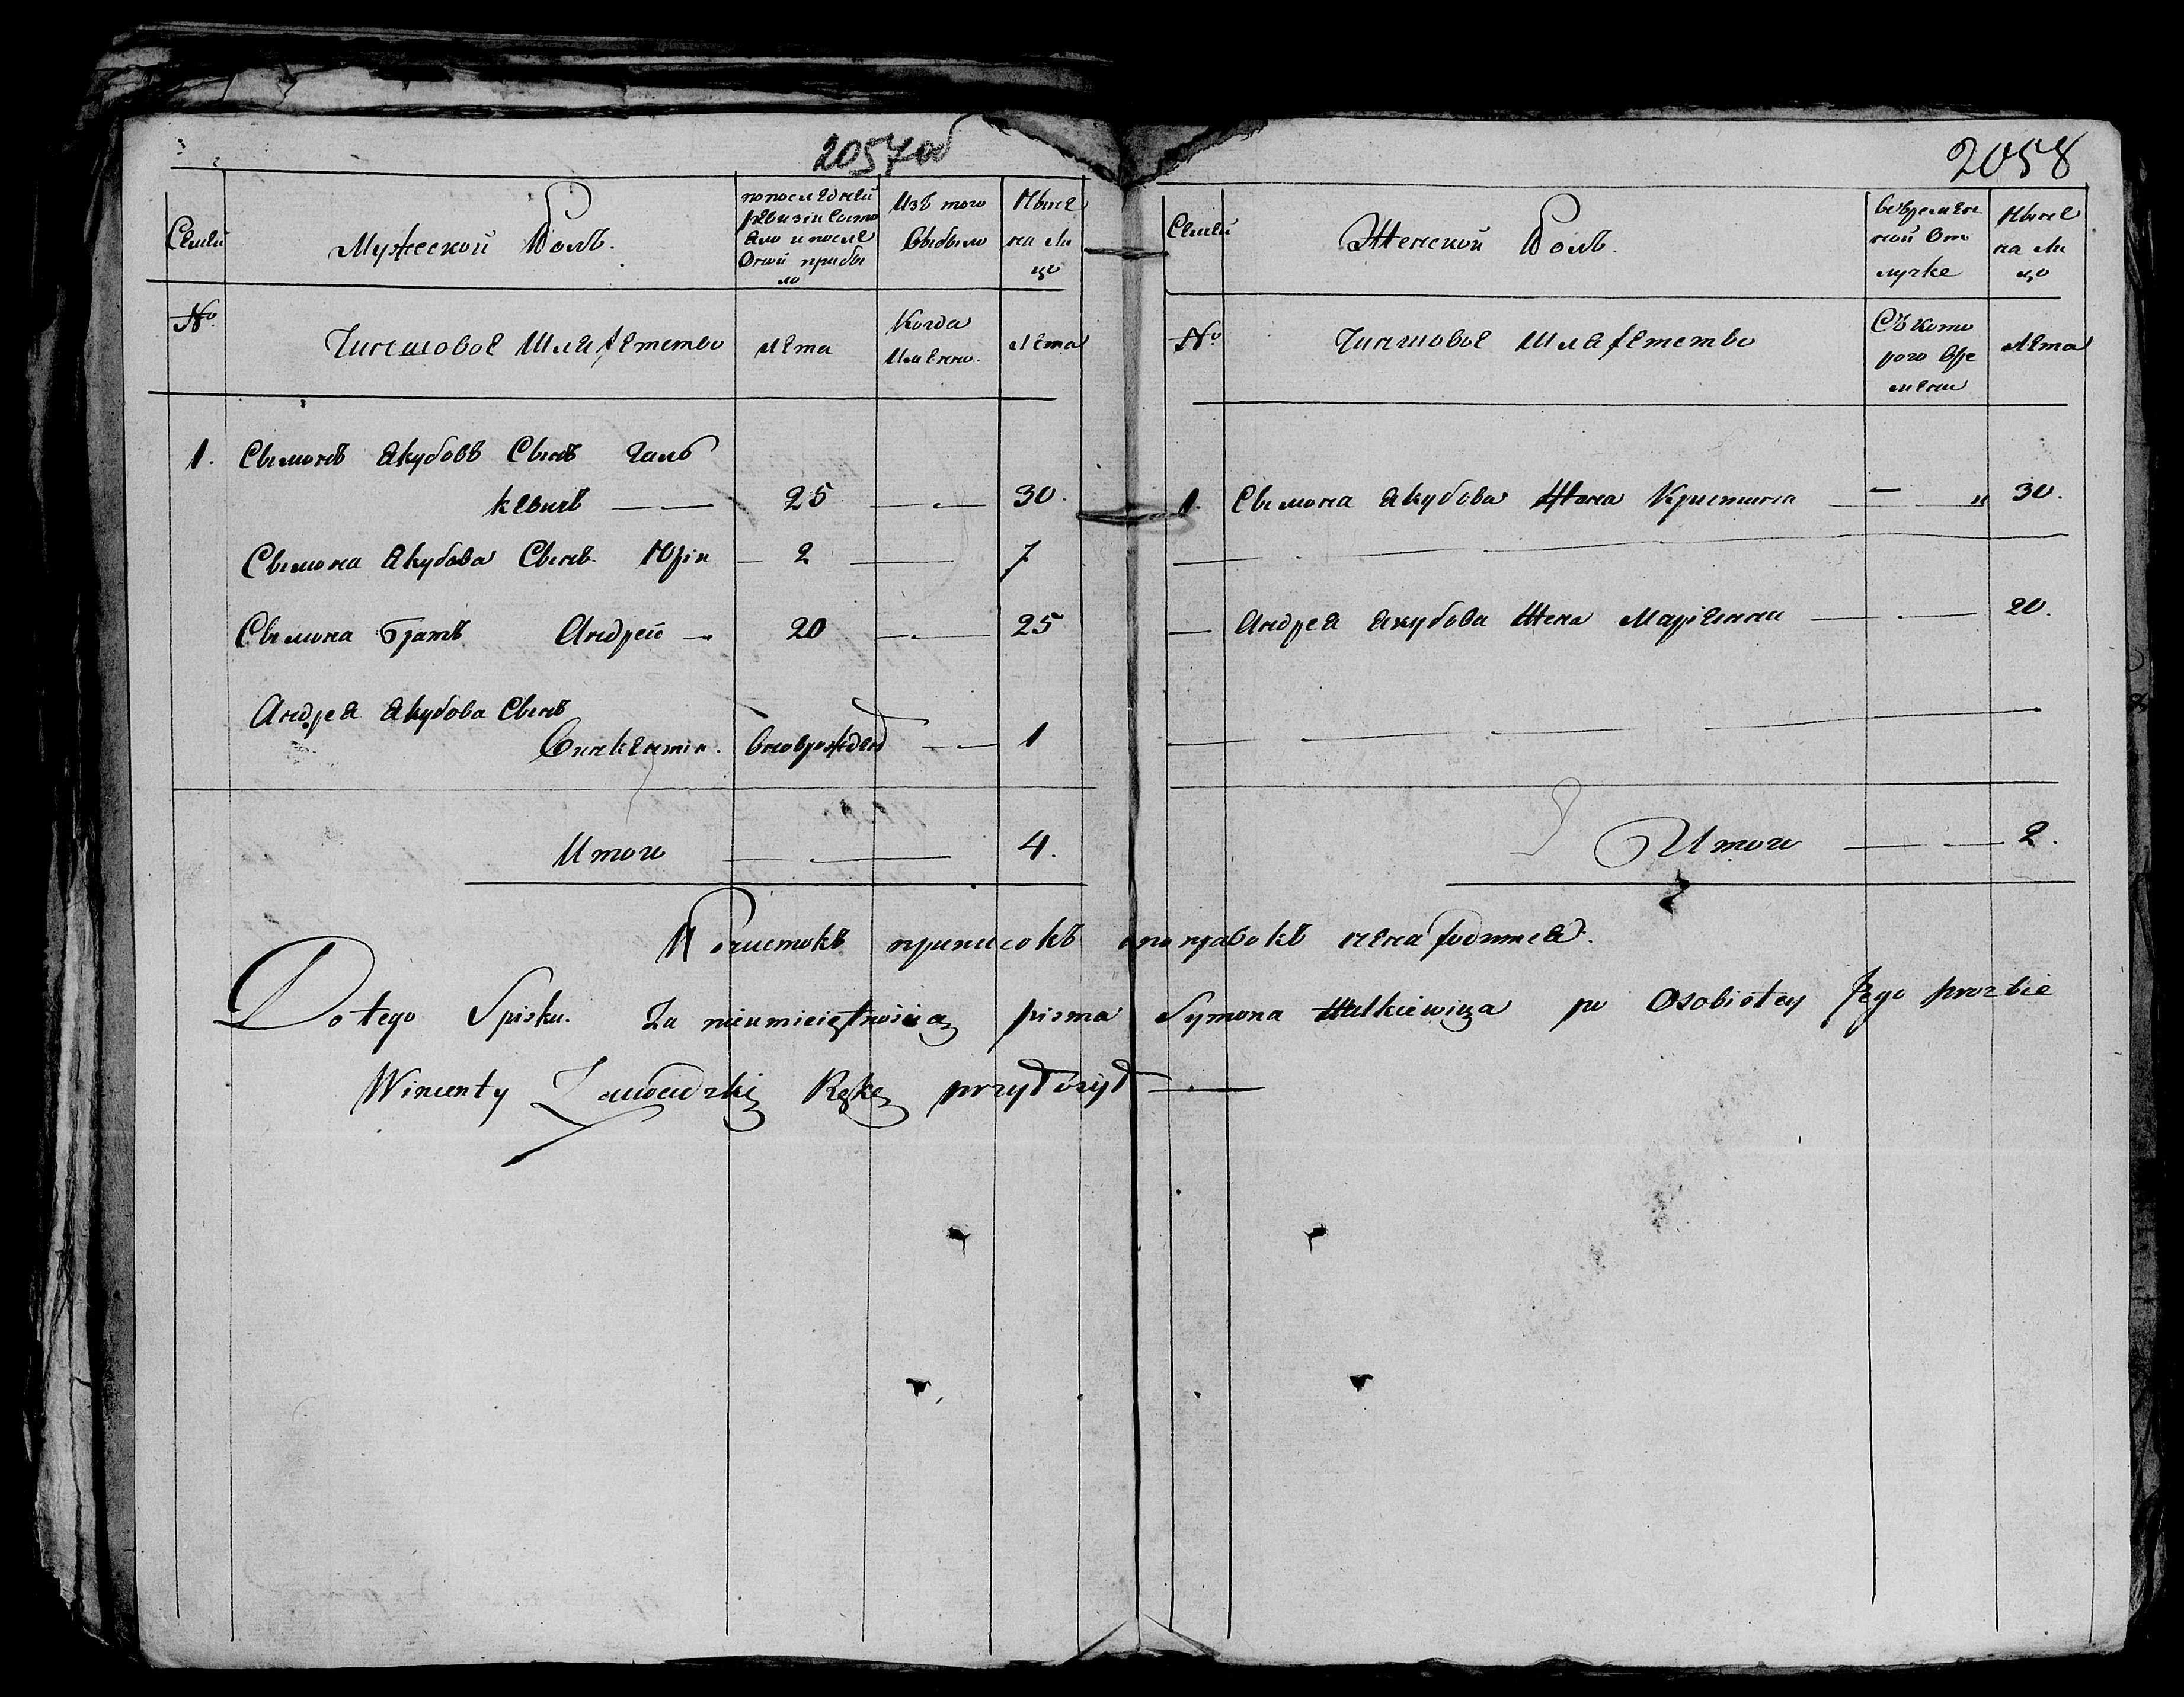 2057об
Семьи
Мужеской Полъ.
по последней ревизiи Состо яло и после Оной прибы ло
Изъ того Выбыло
Ныне на Ли цо
№
Чиншовое Шляхетство
лета
Когда Именно.
Лета
1. Сымонъ Якубовъ Сынъ
кевичъ 25 30.
Сымона Якубова Сынъ Юрiи 2 7
Сымона Братъ Андрей 20 25
Андрея Якубова Сынъ
Внокентiи. вновърожден 1
Итого 4.
2058
Семьи
Женской Полъ.
въвремян ной От лучке
Ныне на Ли цо
№
Чиншовое Шляхетство
Съ кото рого вре мени
Лета
1. Сымона Якубова Жена Кристина " 30.
Андрея Якубова Жена Марiянна 20.
Итого 2.
Почистокъ приписокъ и поправокъ ненаходится.
Do tego Spisku. Za nieumieiętnością pisma Symona po Osobistey Jego prozbie
Wincenty Zawadzki Rękę przyłożył